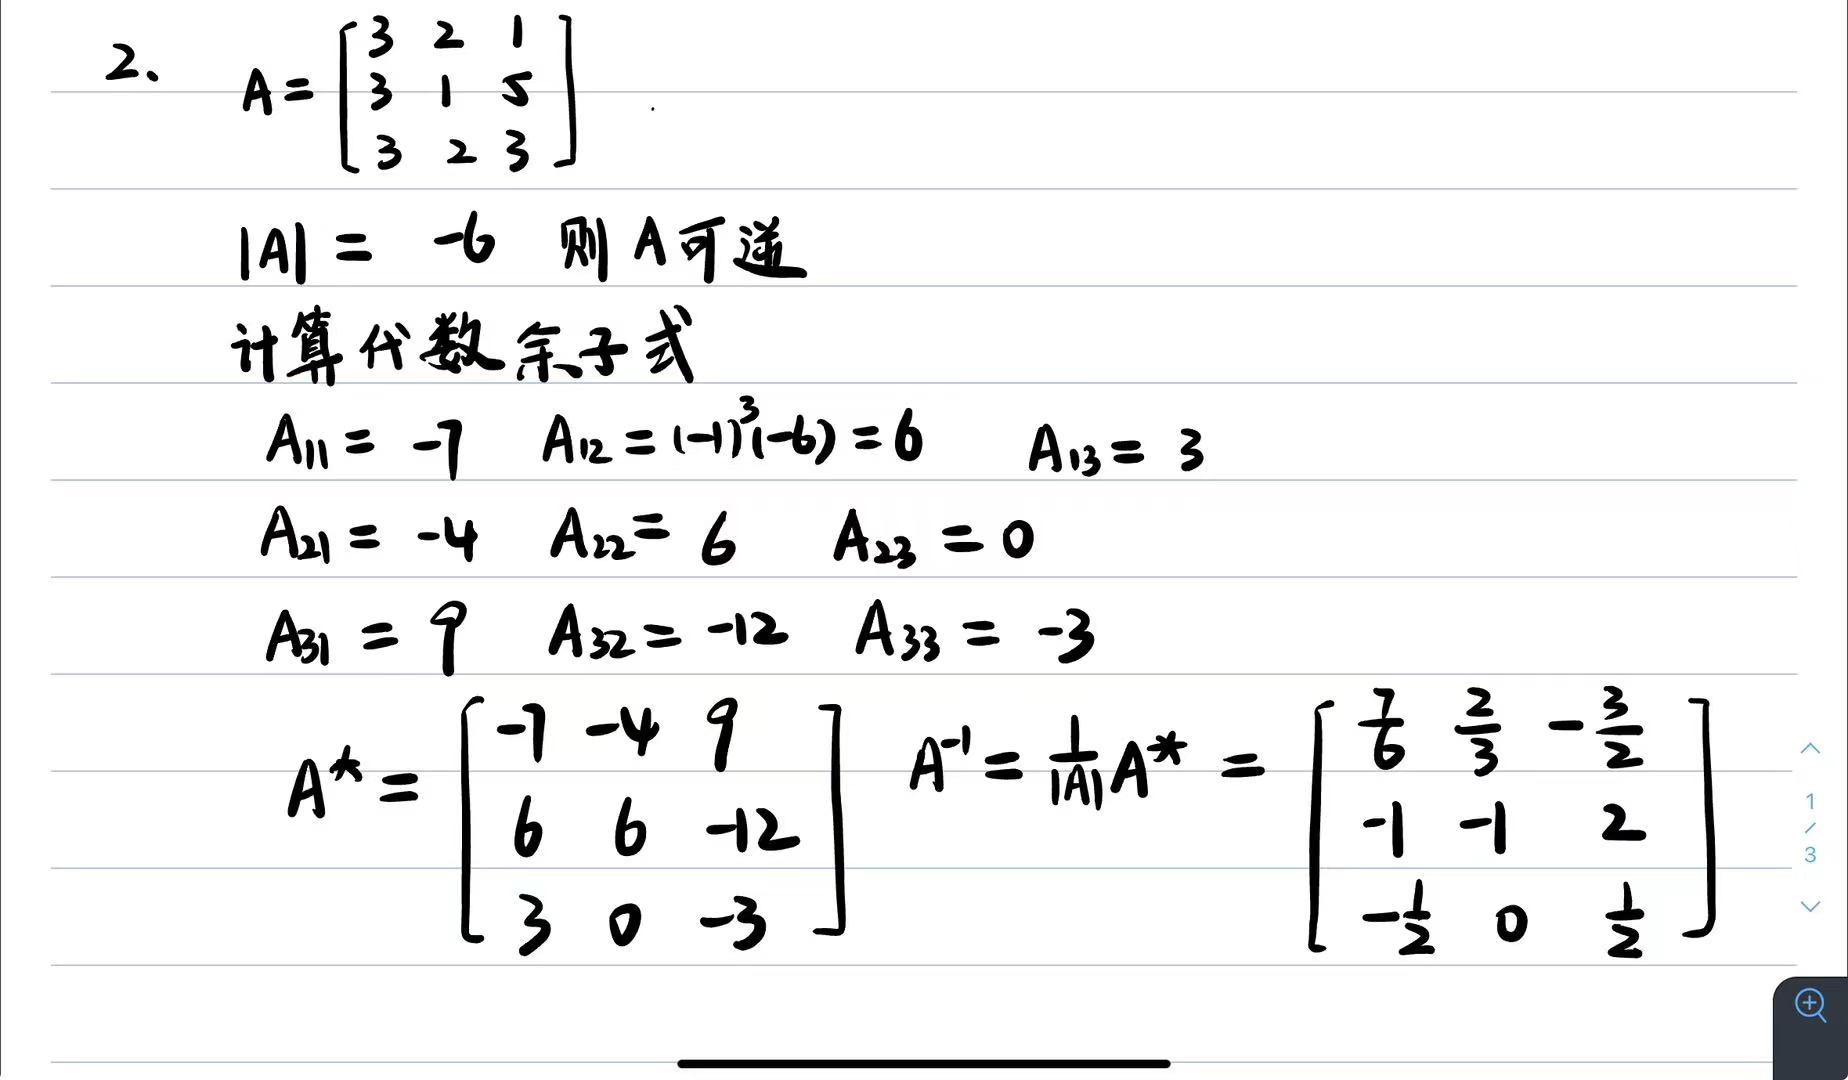 2. A = [3 2 1
3 1 5
3 2 3]
|A| = -6 则 A 可逆
计算代数余子式
A11 = -7 A12 = (-1)^3(-6) = 6 A13 = 3
A21 = -4 A22 = 6 A23 = 0
A31 = 9 A32 = -12 A33 = -3
A* = [-7 -4 9
6 6 -12
3 0 -3] A^-1 = 1/|A| A* = [7/6 2/3 -3/2
-1 -1 2
-1/2 0 1/2]
1
/
3